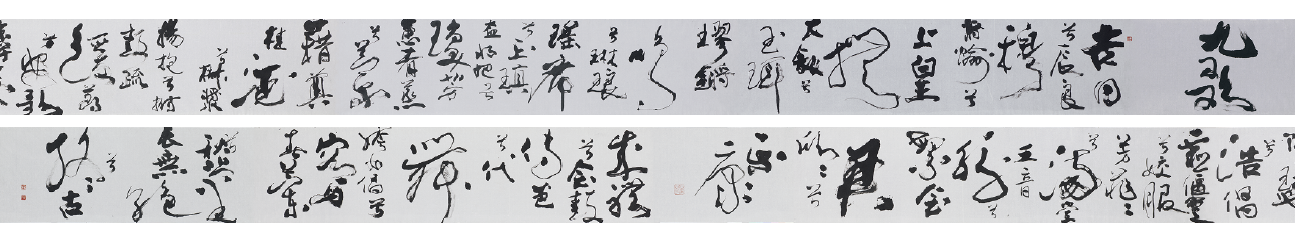 九歌
吉日
兮辰良
穆
將愉兮
上皇
撫
長劍兮
玉珥
璆鏘
鳴
兮琳琅
瑤席
兮玉瑱
盍將把兮
瓊芳
蕙肴蒸
兮蘭
藉奠
桂酒
兮椒漿
揚枹兮拊
鼓疏
緩節
兮安歌
兮浩倡
靈偃蹇
兮姣服
芳菲菲
兮滿堂
五音
紛兮
繁會
君
欣欣兮
樂康
成禮
兮會鼓
傳芭
兮代
舞
姱女倡兮
容與
春蘭
兮秋菊
長無絕
兮
終古